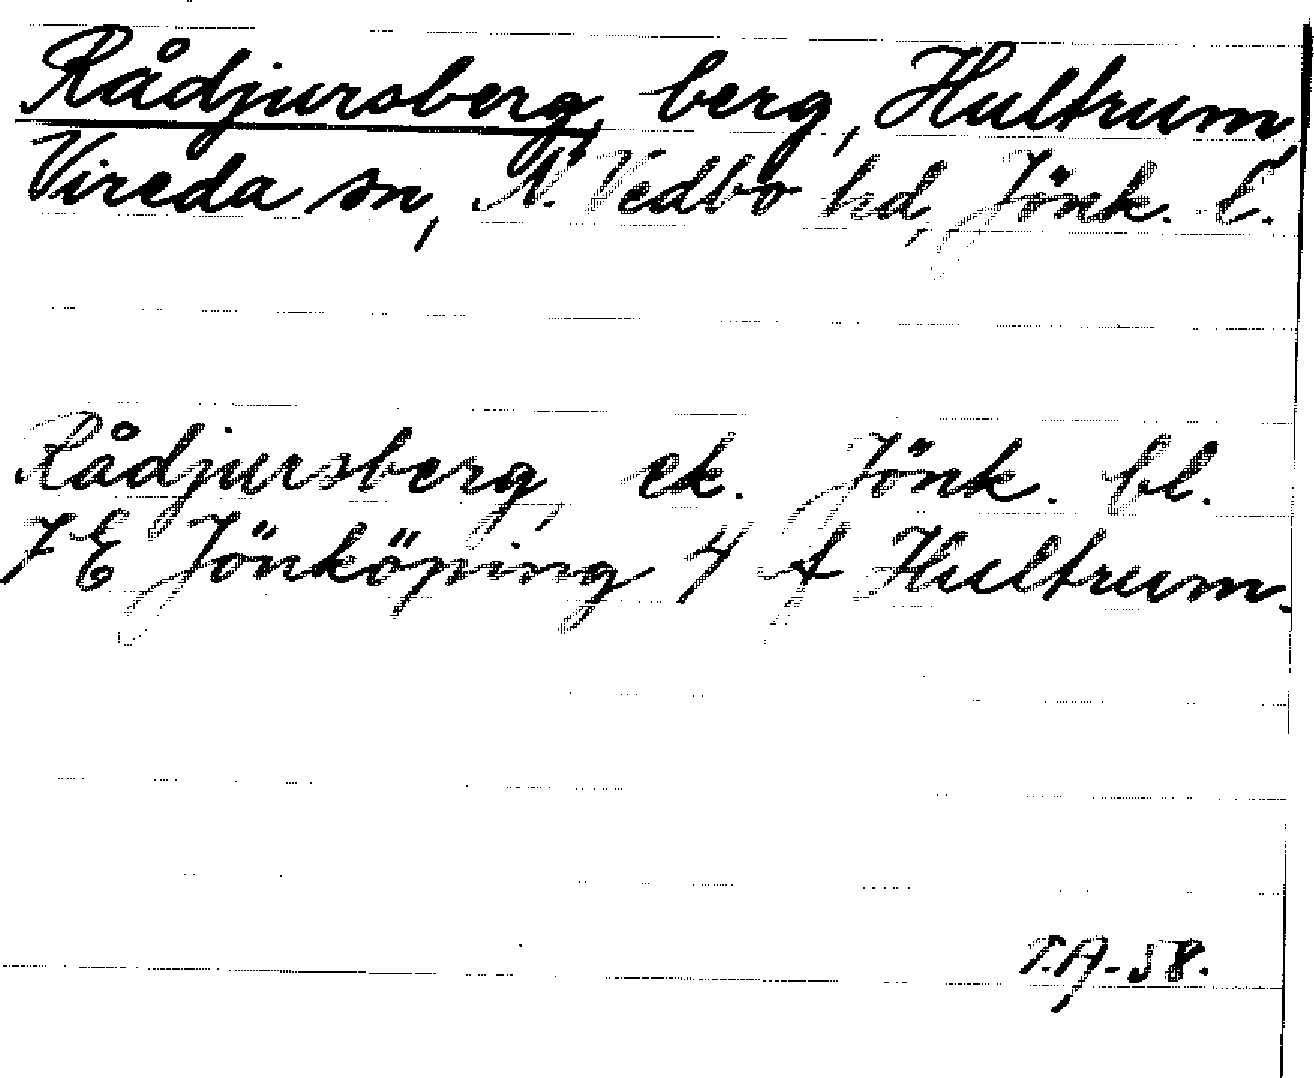 Rådjursberg, berg, Hultrum,
Vireda sn, N. Vedbo hd, Jönk. l.
Rådjursberg, ek. Jönk. bl.
7E Jönköping 4 f Hultrum.
T.A-58.